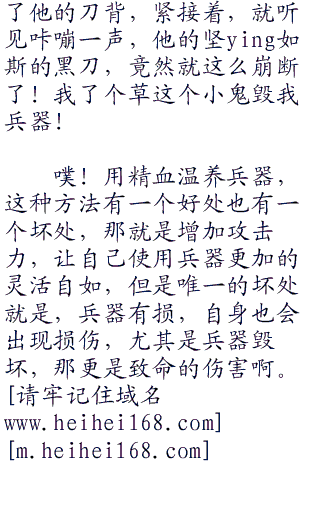 了他的刀背，紧接着，就听
见咔嘣一声，他的坚ying如
斯的黑刀，竟然就这么崩断
了！我了个草这个小鬼毁我
兵器！
噗！用精血温养兵器，
这种方法有一个好处也有一
个坏处，那就是增加攻击
力，让自己使用兵器更加的
灵活自如，但是唯一的坏处
就是，兵器有损，自身也会
出现损伤，尤其是兵器毁
坏，那更是致命的伤害啊。
[请牢记住域名
www.heihei168.com]
[m.heihei168.com]